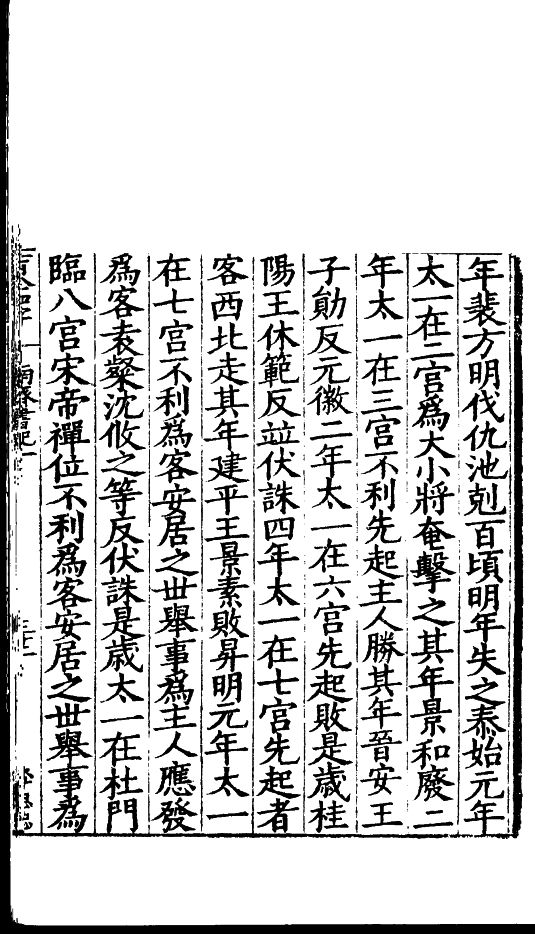 年裴方明伐仇池剋百頃明年失之泰始元年
太一在二宮爲大小將奄擊之其年景和廢二
年太一在三宮不利先起主人勝其年晉安王
子勛反元徽二年太一在六宮先起敗是歲桂
陽王休範反竝伏誅四年太一在七宮先起者
客西北走其年建平王景素敗昇明元年太一
在七宮不利爲客安居之世舉事爲主人應發
爲客袁粲沈攸之等反伏誅是歲太一在杜門
臨八宮宋帝禪位不利爲客安居之世舉事爲